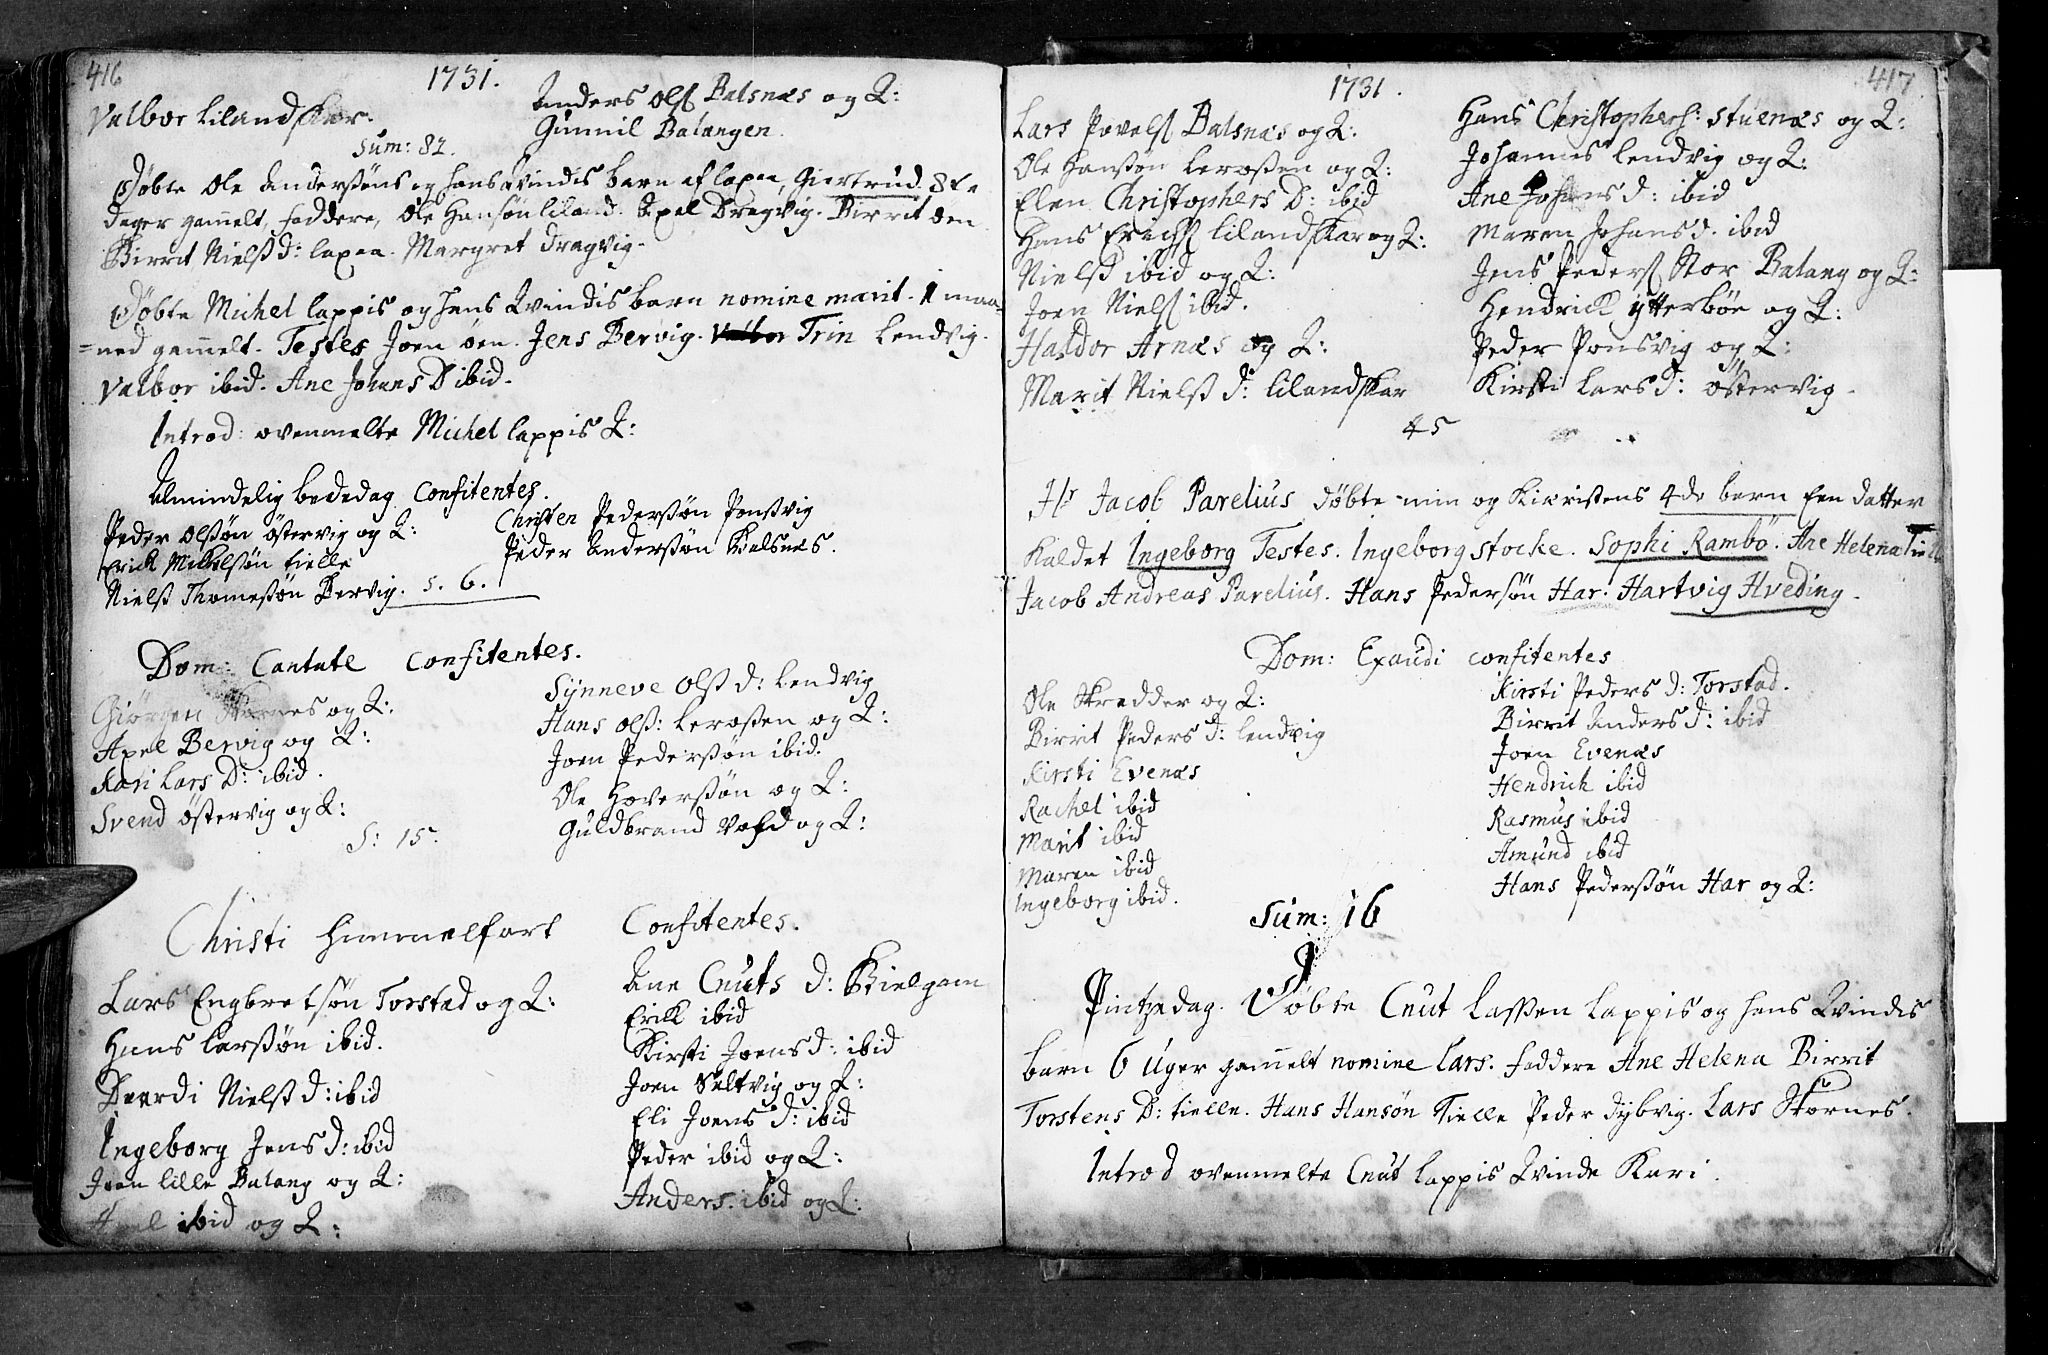 416
1731.
Valbor Lilandskar.
Anders Ols. Balsnæs og Q:
Gunnil Balangen.
Sum: 82.
Døbte Ole Anderssøns og hans Qvindis barn af laxaa, Giertrud. 8te
dager gam̄elt, faddere, Ole Hansøn Liland. Axel Dragvig. Birrit øen
Birrit Nielss D: laxaa. Margret Dragvig.
Døbte Michel lappis og hans Qvindis barn nomine marit. 1 maa-
=ned gam̄elt. Testes Joen øen. Jens Bervig. Trin Lendvig.
Valbor ibid. Ane Johans D ibid.
Introd: ovenmelte Michel lappis Q:
Almindelig bededag. Confitentes.
Peder Olssøn Østervig og Q:
Erick Mikkelsøn tielle
Nielss Thomessøn Bervig. S. 6.
Christen Pederssøn Ponsvig
Peder Anderssøn Balsnæs.
Dom: Cantate Confitentes.
Giørgen Skornes og Q:
Axel Bervig og Q:
Kari Lars D: ibid.
Svend Østervig og Q:
S: 15.
Synneve Olss D: Lendvig
Hans Olss: Lerossen og Q:
Joen Pederssøn ibid.
Ole Hoverssøn og Q:
Guldbrand Vold og Q:
Christi Himmelfart Confitentes.
Lars Engbretsøn Torstad og Q:
Hans Larssøn ibid.
Dordi Nielss D: ibid
Ingeborg Jens D: ibid
Joen lille Balang og Q:
Axel ibid og Q:
Ane Cnuts D: Skielgam
Erick ibid
Kirsti Joens D: ibid
Joen Seltvig og Q:
Eli Joens D: ibid
Peder ibid og Q:
Anders. ibid og Q:
417
1731.
Lars Povels. Balsnæs og Q:
Ole Hanssøn Lerossen og Q:
Elen Christophers D: ibid
Hans Erichs. Lilandskar og Q:
Nielss ibid og Q:
Joen Niels. ibid.
Haldor Arnæs og Q:
Marit Nielss D: Lilandskar
Hans Christophers: Stuenæs og Q:
Johannes Lendvig og Q:
Ane Johans D: ibid
Maren Johans D. ibid
Jens Peders. Stor Balang og Q:
Hendrick ytterbøe og Q:
Peder Ponsvig og Q:
Kirsti Lars D: Østervig.
45
Hr Jacob Parelius døbte min og Kirkistens 4de barn Een datter
kaldet Ingeborg Testes. Ingeborg Stocke. Sophi Rambø. Ane Helena
Jacob Andreas Parelius. Hans Pedersøn Har. Hartvig Hveding.
Dom: Exaudi confitentes
Ole Skredder og Q:
Birrit Peders D: Lendvig
Kirsti Evenæs
Rachel ibid
Marit ibid
Maren ibid
Ingeborg ibid.
Kirsti Peders D: Torstad.
Birrit Anders D: ibid
Joen Evenæs
Hendrich ibid
Rasmus ibid
Amund ibid
Hans Pederssøn Har og Q:
Sum: 16
Pintzedag. Døbte Cnut Lassen Lappis og hans Qvindis
barn 6 Uger gam̄elt nomine Lars. faddere Ane Helena Birrit
Torstens D: tielle. Hans Hansøn Tielle Peder Dybvig. Lars Skornes.
Introd ovenmelte Cnut Lappis Qvinde Kari.